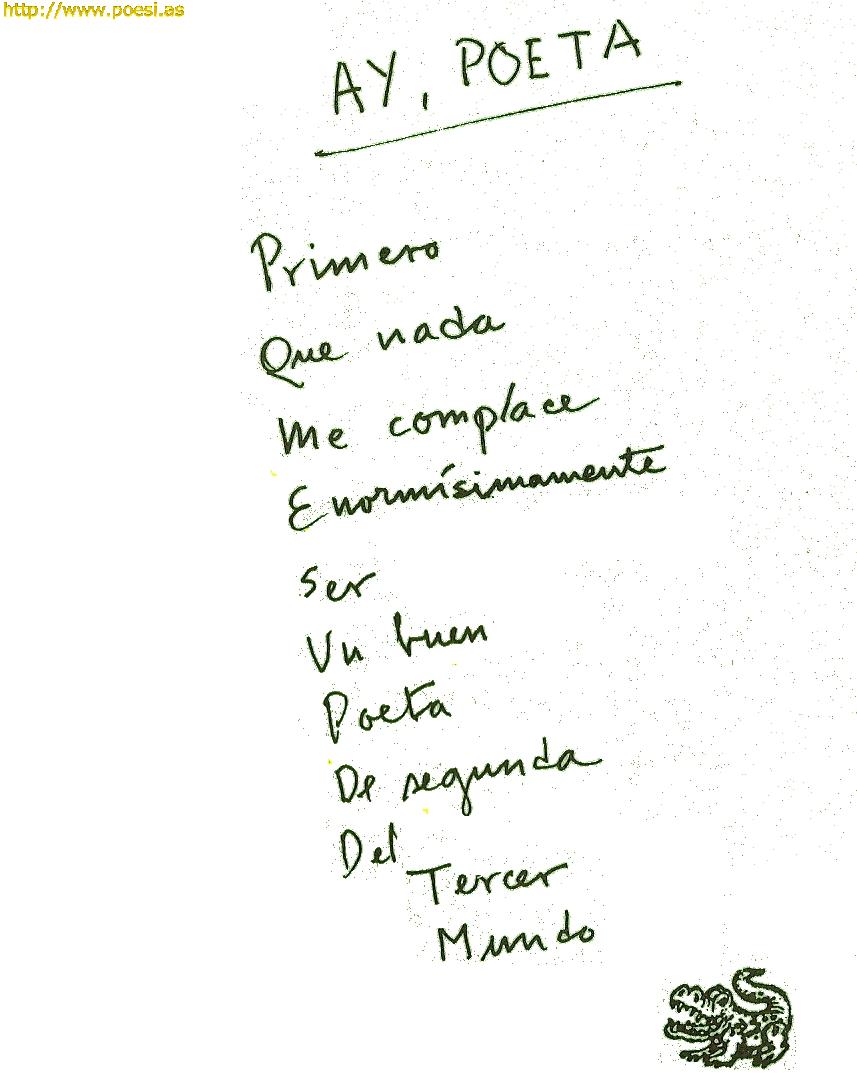 http://www.poesi.as
AY, POETA
Primero
Que nada
Me complace
Enormísimamente
Ser
Un buen
Poeta
De segunda
Del
Tercer
Mundo